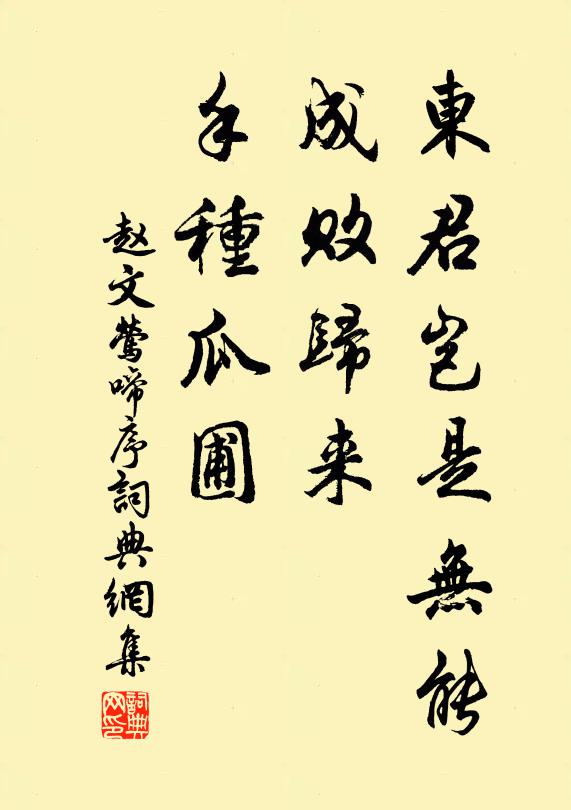 東君豈是無能
成敗歸来
手種瓜圃
赵文鶯啼序詞典網集
詞典网印